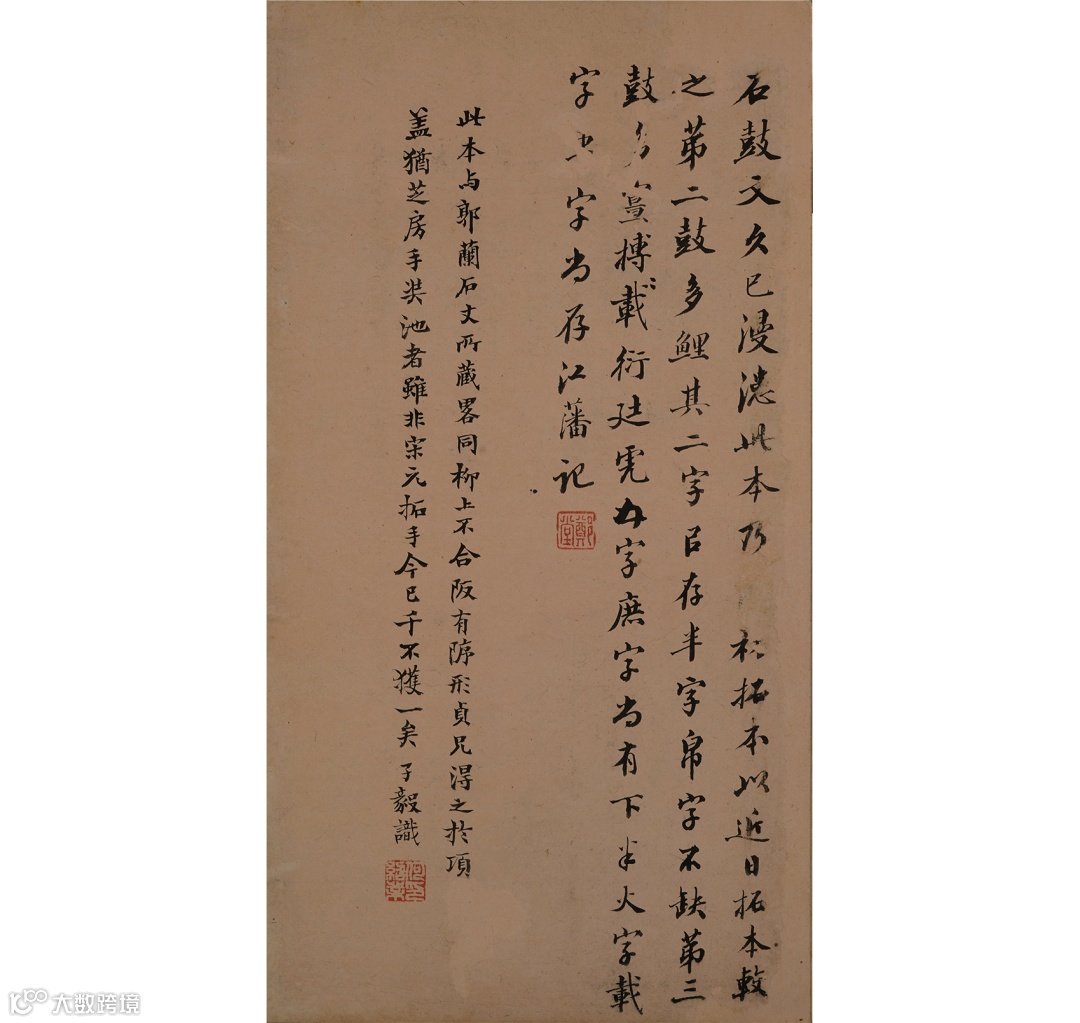 石鼓文久巳漫漶此本乃拓本以近日拓本較
之苐二鼓多鯉其二字㠯存半字帛字不缺苐三
鼓多搏載衍字庶字尚有下半火字載
字字尚存江藩記
鄭堂
此本与郭蘭石丈所藏畧同柳上不合阪有形貞兄得之於項
盖猶芝房手裝池者雖非宋元拓手今已千不獲一矣子毅識
大数跨境